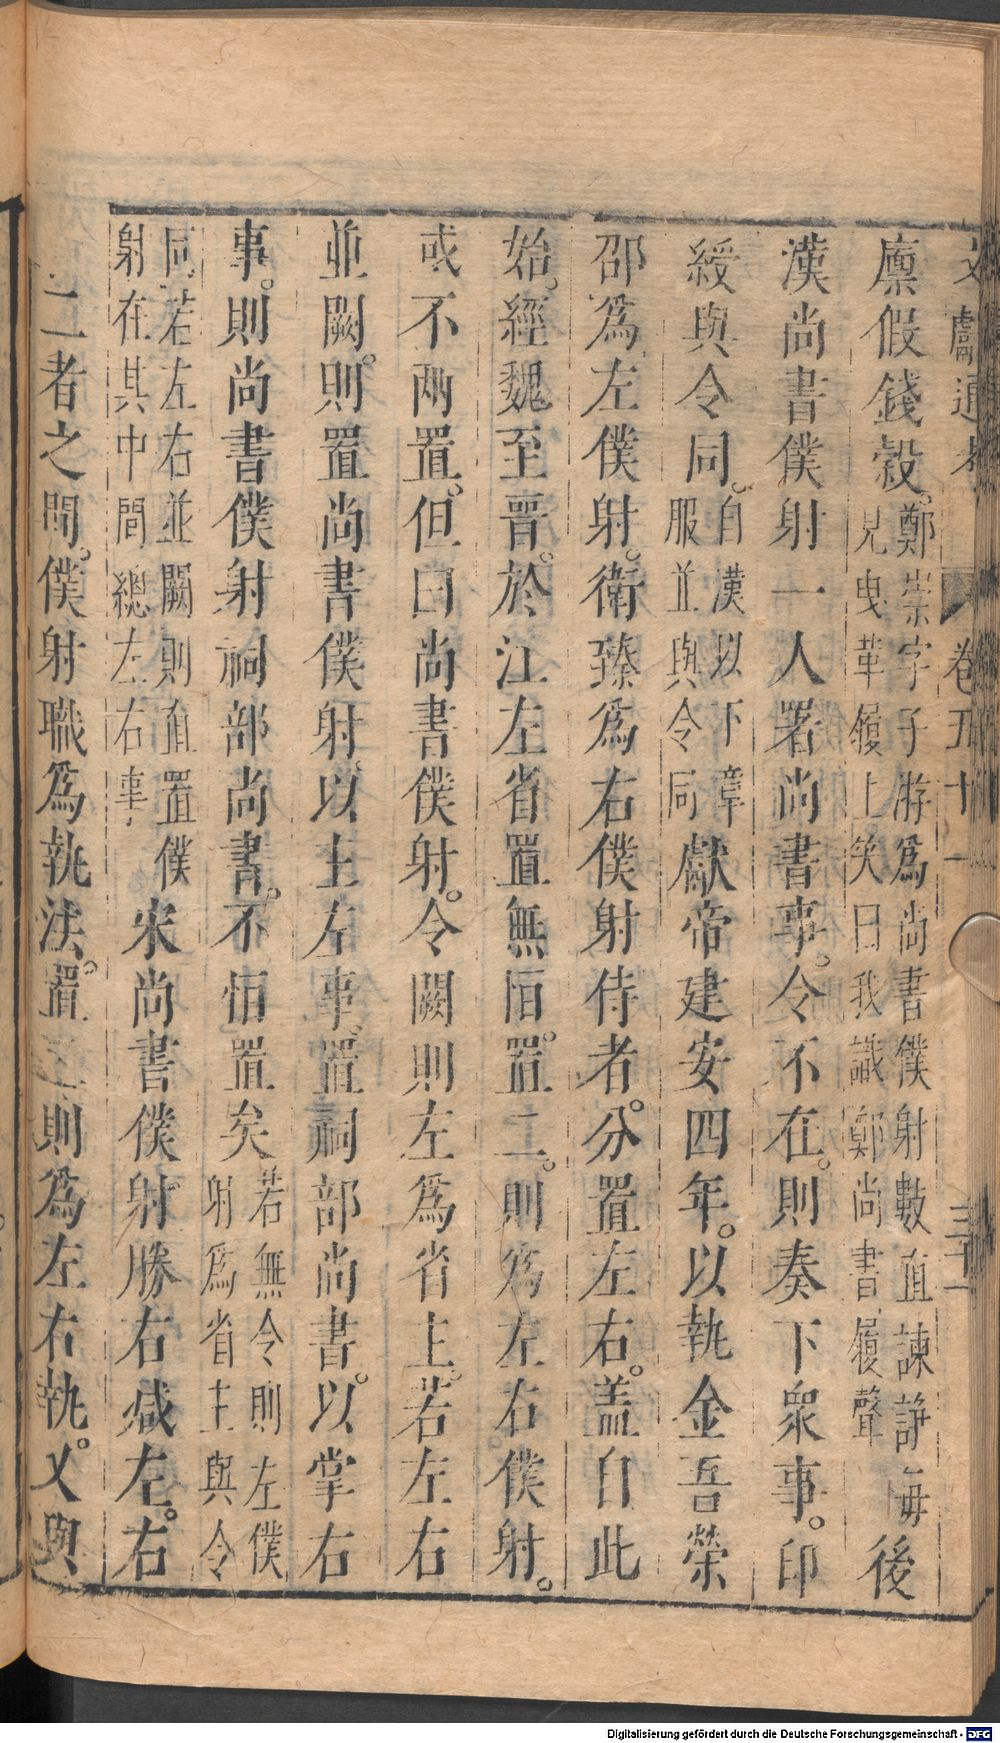 文獻通考 卷五十一 三十一
廩假錢穀。鄭崇字子游爲尚書僕射數直諫諍每見曳革履上笑曰我識鄭尚書履聲後
漢尚書僕射一人署尚書事。令不在。則奏下衆事。印
綬與令同。自漢以下章服並與令同獻帝建安四年。以執金吾榮
邵爲左僕射。衛臻爲右僕射侍者。分置左右。蓋自此
始。經魏至晉。於江左省置無恒。置二。則爲左右僕射。
或不兩置。但曰尚書僕射。令闕則左爲省主。若左右
並闕。則置尚書僕射。以主左事。置祠部尚書。以掌右
事。則尚書僕射祠部尚書。不恒置矣若無令則左僕射爲省主與令
同。若左右並闕則直置僕射在其中間總左右事宋尚書僕射勝右減左。右
二者之間。僕射職爲執法。置二則爲左右執。又與
Digitalisierung gefördert durch die Deutsche Forschungsgemeinschaft - DFG